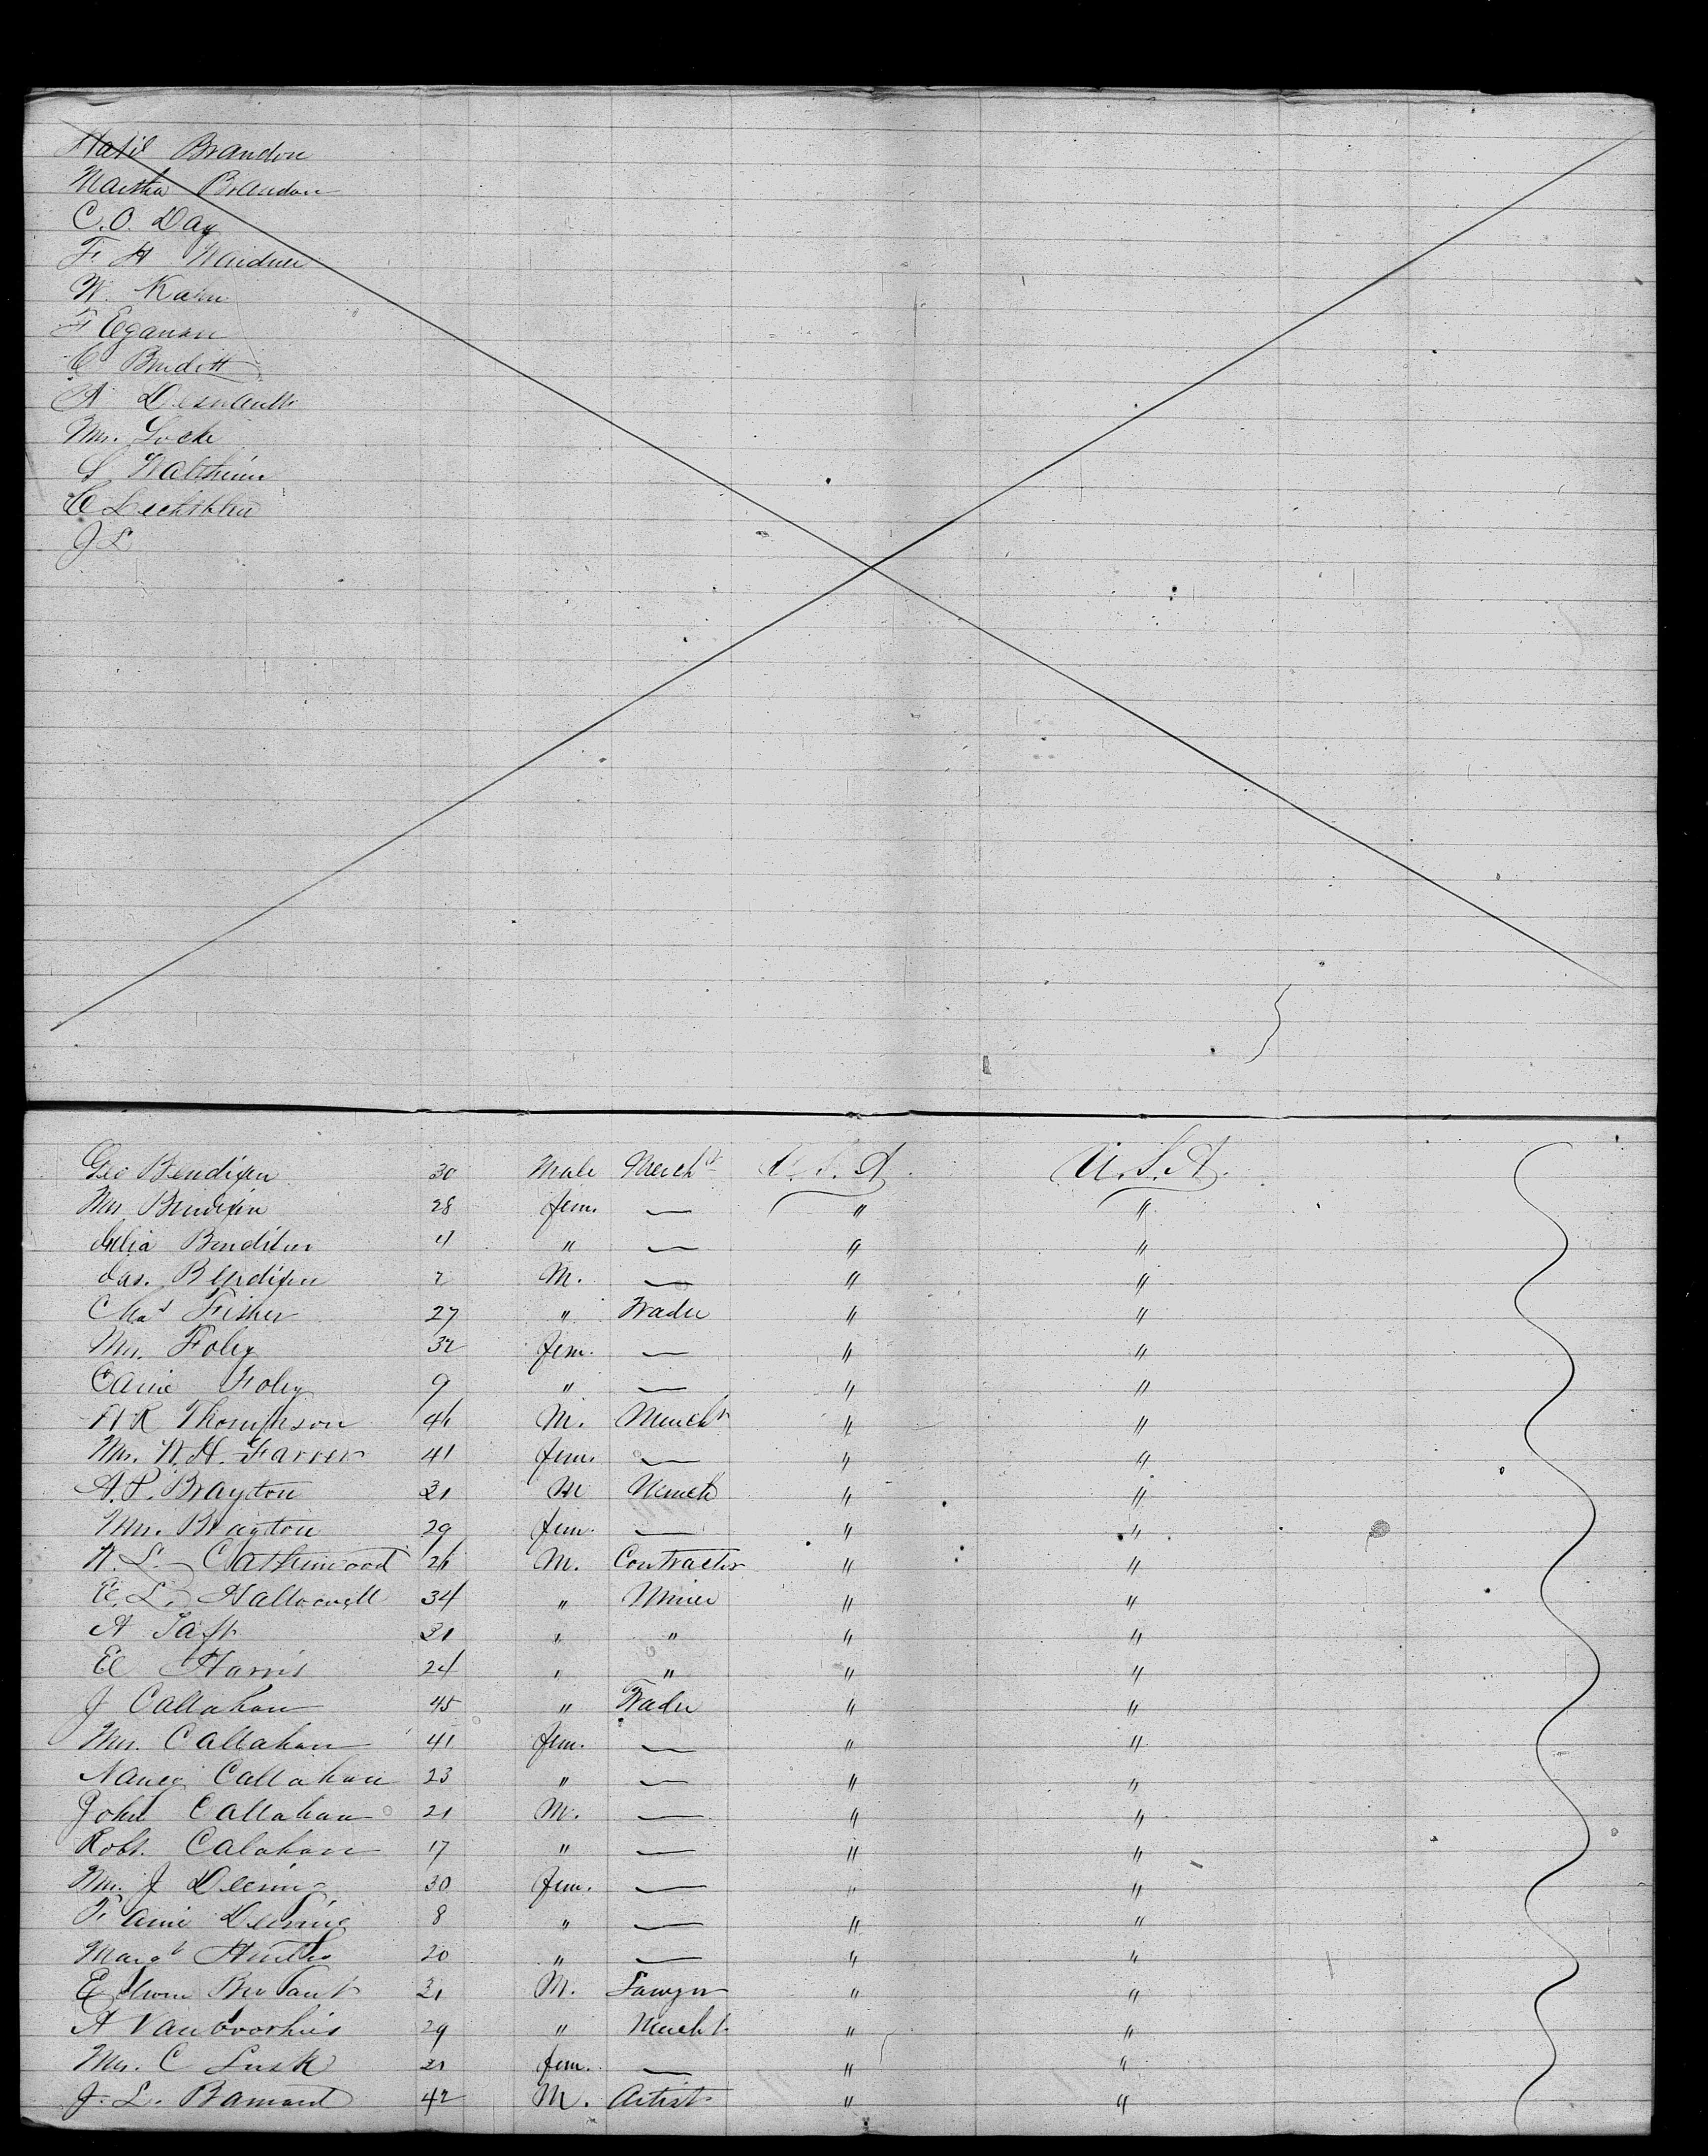 Brandon
Martha Brandon
C. O. Day
F. H
W. Kahn
F Eganson
C Burdett
A
Mrs. Locke
S Waltheim
C
J L
Geo Bendixen 30 Male Mercht U.S.A. U.S.A.
Mrs Bendixen 28 fem. — " "
Julia Bendixen 4 " — " "
Jas. Bendixen 2 M. — " "
Chas Fisher 27 " Trader " "
Mrs. Foley 32 fem. — " "
Carrie Foley 9 " — " "
H R Thompson 46 M. Mercht " "
Mrs. W. H. Farrer 41 fem. — " "
A. P. Brayton 31 M Merch " "
Mrs. Brayton 29 fem. — " "
W. L. Catherwood 26 M. Contractor " "
E. L. Hallowell 34 " Miner " "
A Taft 31 " " " "
E Harris 24 " " " "
J Callahan 45 " Trader " "
Mrs. Callahan 41 fem. — " "
Nancy Callahan 23 " — " "
John Callahan 21 M. — " "
Robt. Calahan 17 " — " "
Mrs. J Deering 30 fem. — " "
Fanie Deering 8 " — " "
Margt 20 " — " "
Edwin Bryant 31 M. Lawyer " "
A Vanvoorhies 29 " Mercht " "
Mrs. C Lusk 21 fem. — " "
J. L. Barnard 42 M. Artist " "